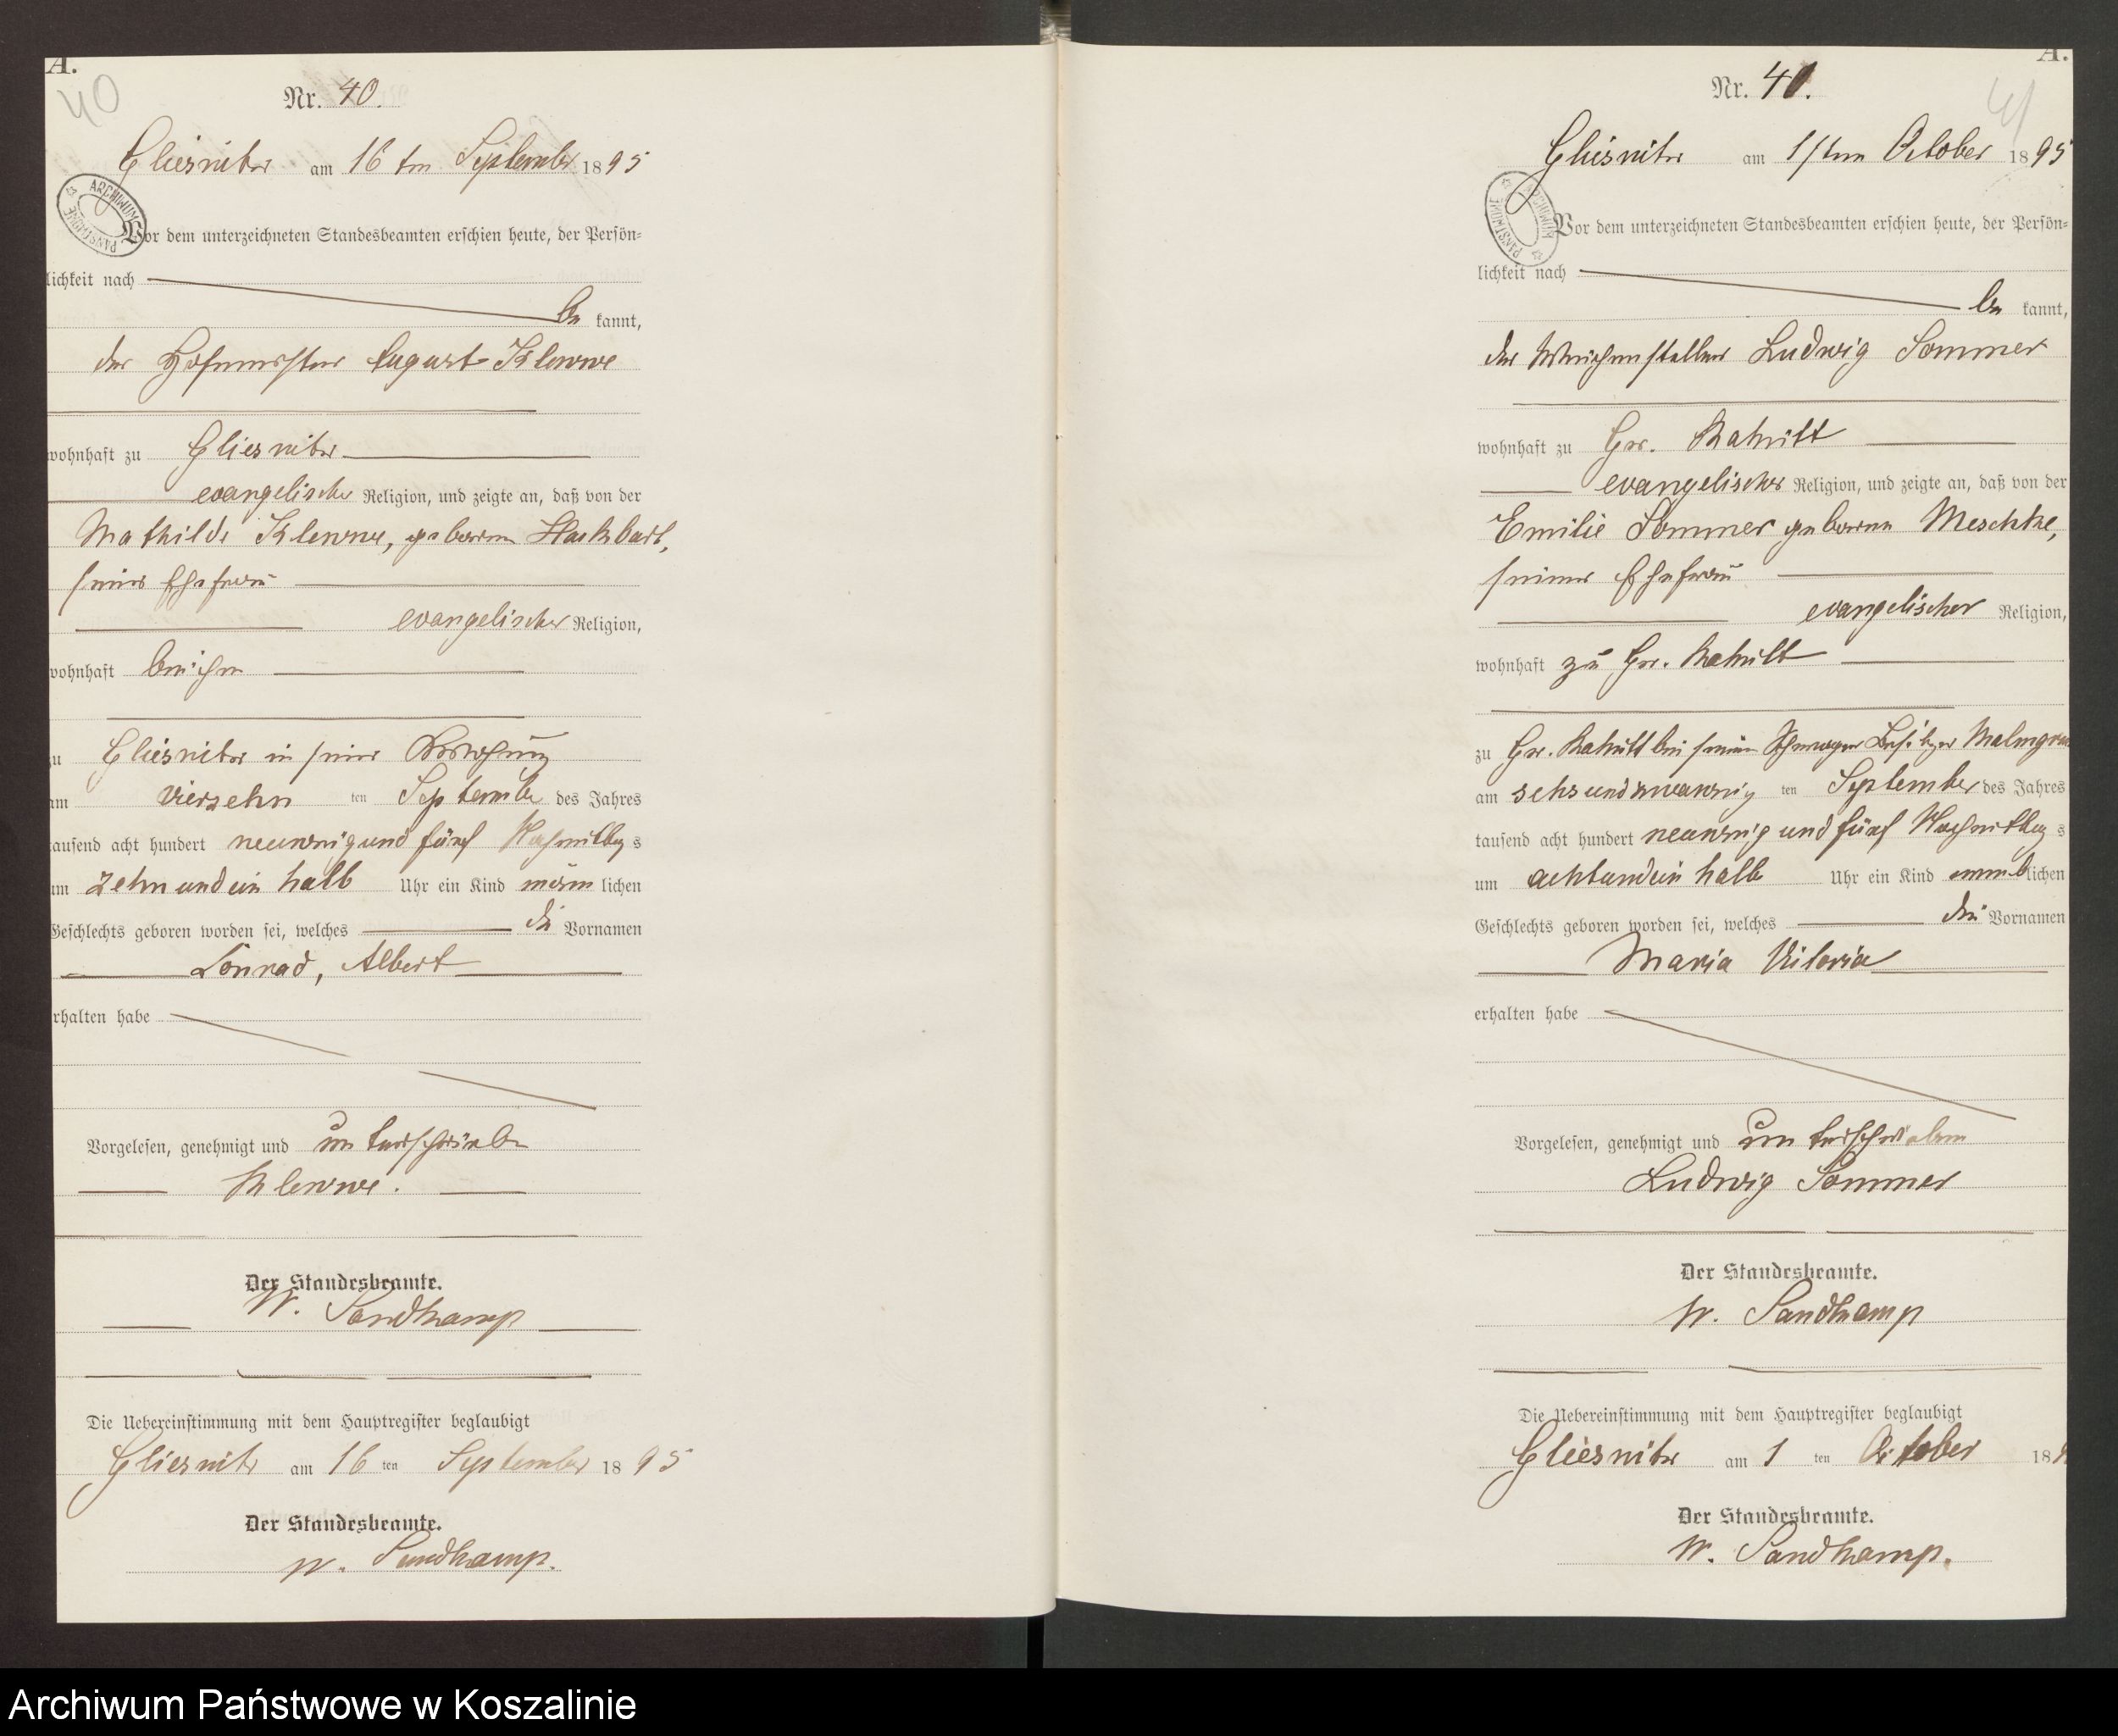 A.
40
Nr. 40.
Gliesnitz am 16 ten September 1895
ARCHIWUM PAŃSTWOWE
Vor dem unterzeichneten Standesbeamten erschien heute, der Persön=
lichkeit nach
be kannt,
der Hofmeister August Klewwe
wohnhaft zu Gliesnitz
evangelischer Religion, und zeigte an, daß von der
Mathilde Klewwe, geborene Hackbart,
seiner Ehefrau
evangelischer Religion,
wohnhaft bei ihm
zu Gliesnitz in seiner Wohnung
am vierzehn ten September des Jahres
tausend acht hundert neunzig und fünf Nachmittag s
um zehn und ein halb Uhr ein Kind männ lichen
Geschlechts geboren worden sei, welches die Vornamen
Conrad, Albert
erhalten habe
Vorgelesen, genehmigt und unterschrieben
Klewwe.
Der Standesbeamte.
W. Sandkamp
Die Uebereinstimmung mit dem Hauptregister beglaubigt
Gliesnitz am 16 ten September 1895
Der Standesbeamte.
W. Sandkamp.
A.
41
Nr. 41.
Gliesnitz am 1sten October 1895
ARCHIWUM PAŃSTWOWE
Vor dem unterzeichneten Standesbeamten erschien heute, der Persön=
lichkeit nach
be kannt,
der Weichensteller Ludwig Sommer
wohnhaft zu Gr. Rakitt
evangelischer Religion, und zeigte an, daß von der
Emilie Sommer geborene Meschke,
seiner Ehefrau
evangelischer Religion,
wohnhaft zu Gr. Rakitt
zu Gr. Rakitt bei seinem Schwager Besitzer
am sechsundzwanzig ten September des Jahres
tausend acht hundert neunzig und fünf Nachmittag s
um acht und ein halb Uhr ein Kind lichen
Geschlechts geboren worden sei, welches die Vornamen
Maria Vitoria
erhalten habe
Vorgelesen, genehmigt und unterschrieben
Ludwig Sommer
Der Standesbeamte.
W. Sandkamp
Die Uebereinstimmung mit dem Hauptregister beglaubigt
Gliesnitz am 1 ten October 189
Der Standesbeamte.
W. Sandkamp.
Archiwum Państwowe w Koszalinie